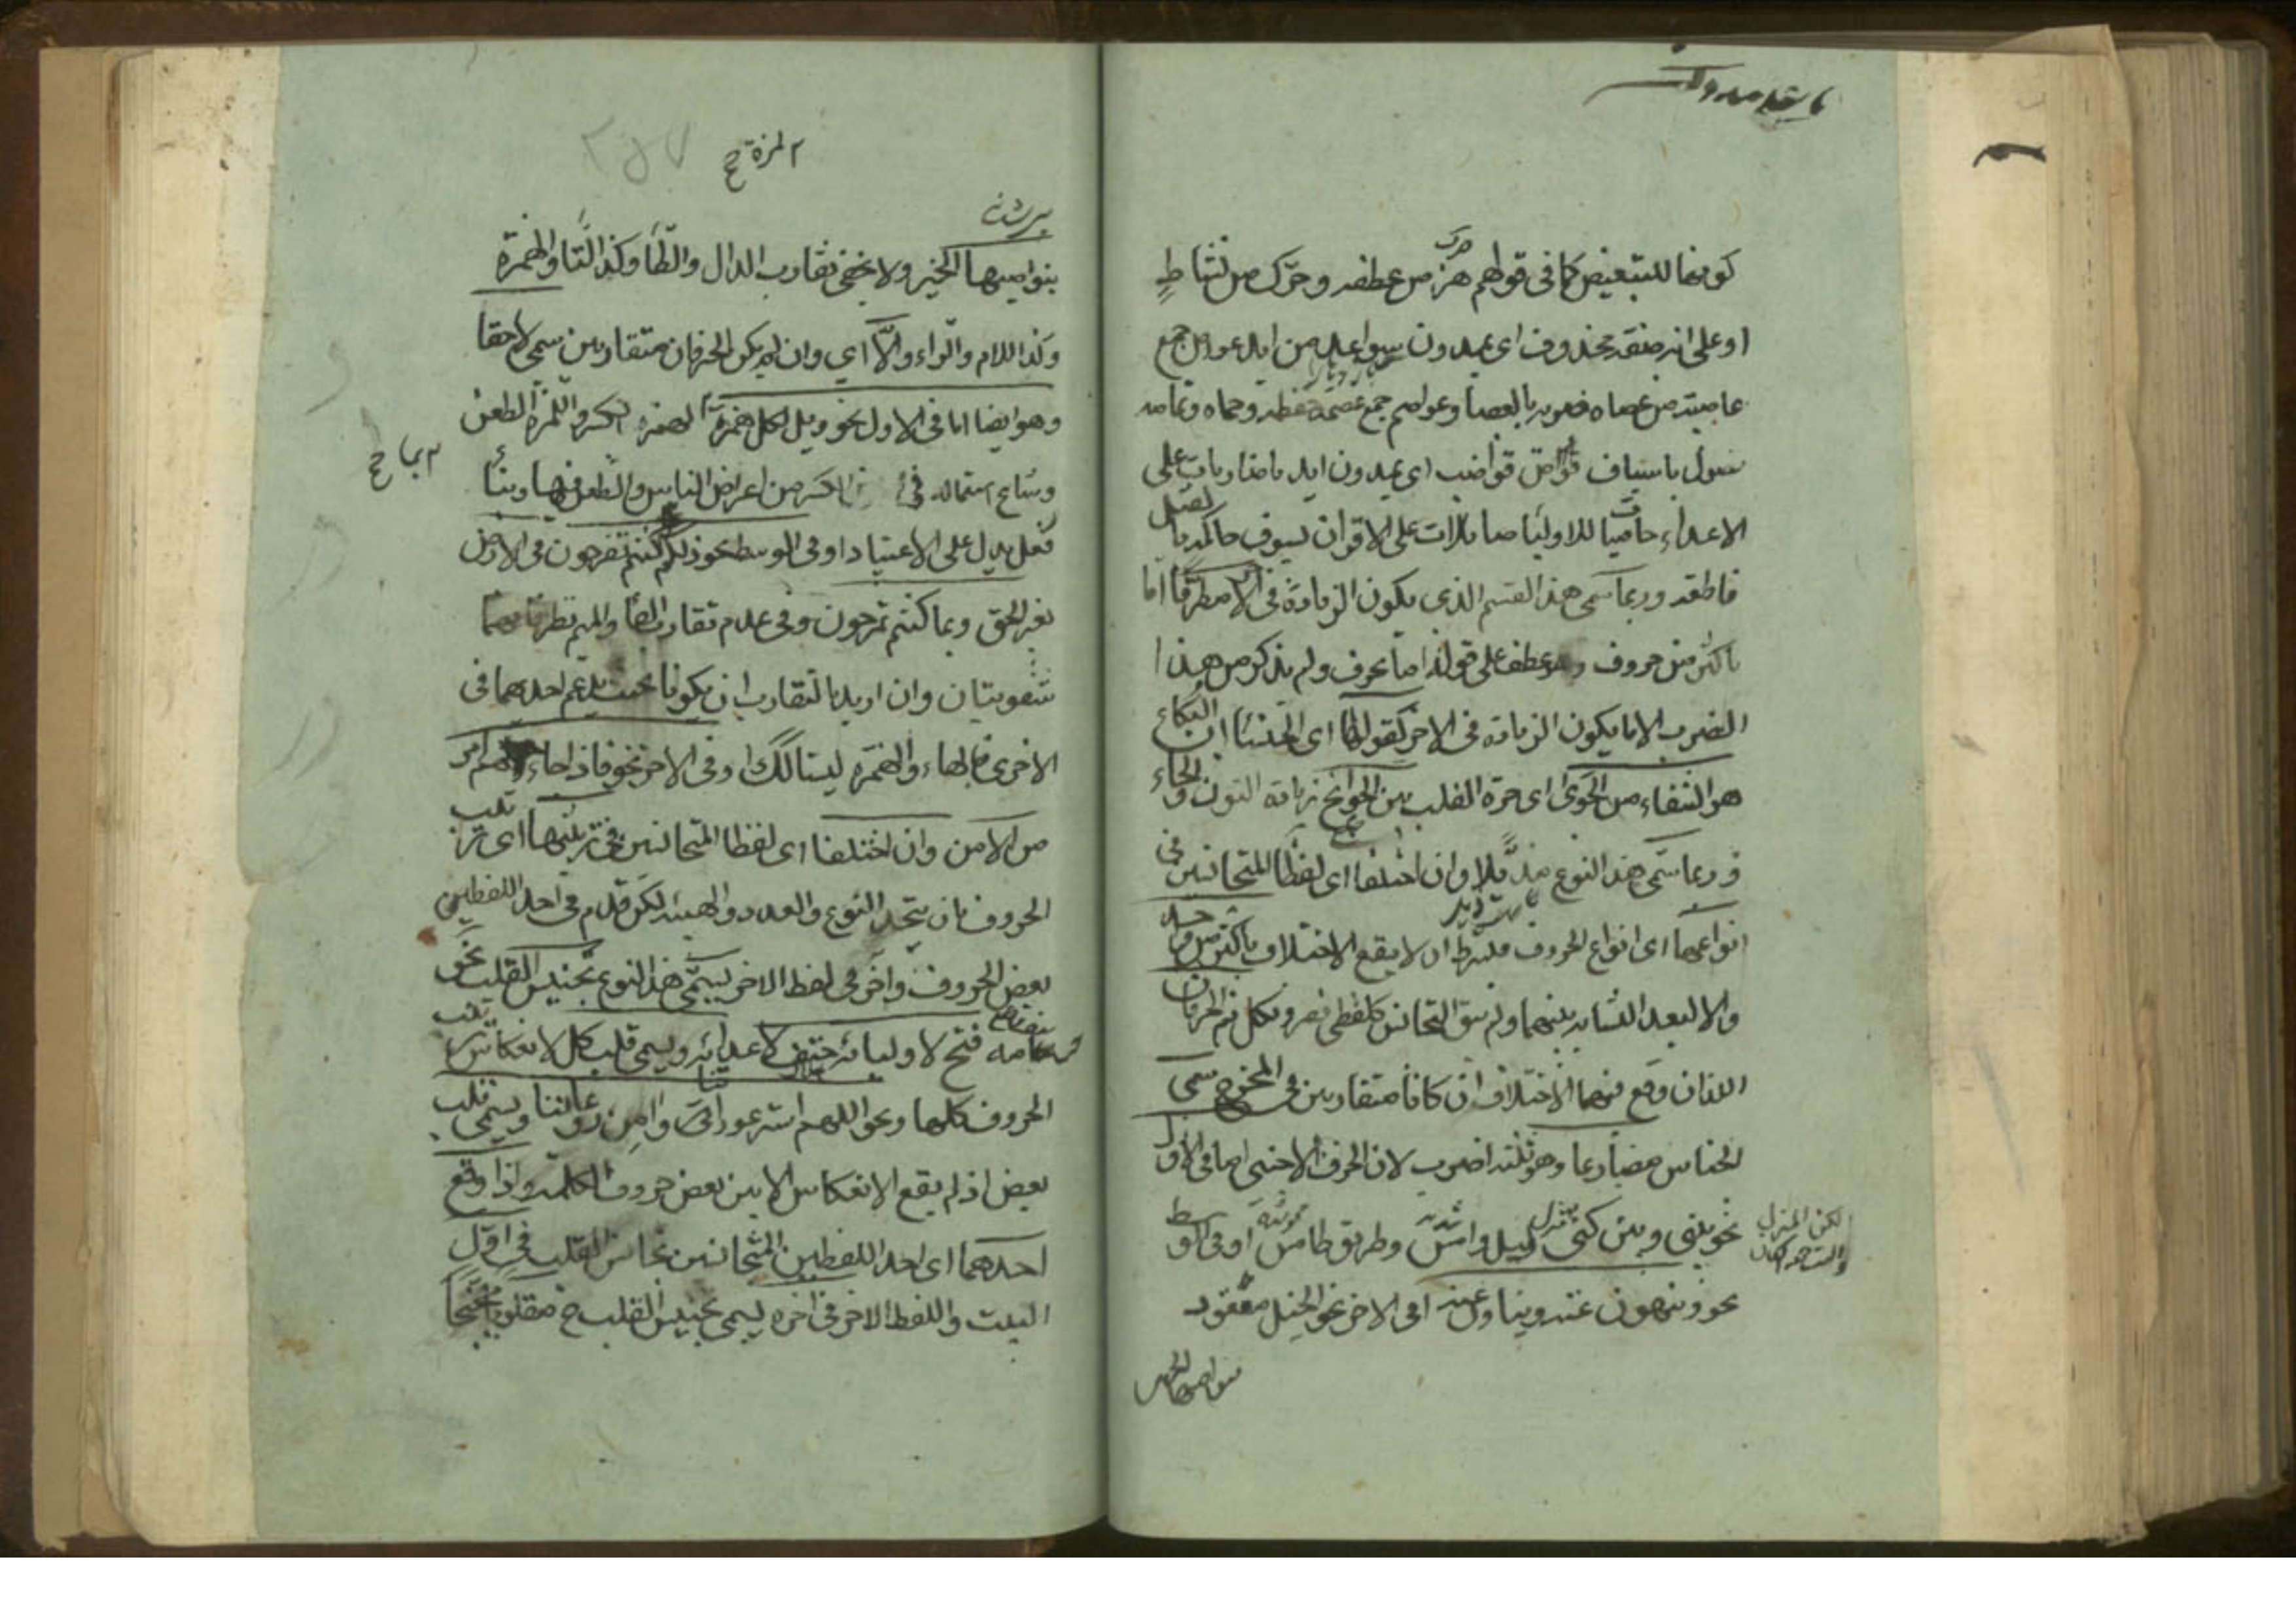 كونها للتبعيض كما فى قولهم هز من عطفه وحرك من نشاطٍ
او على انه صفة محذوف اى يمدون سواعد من ايد عواص جمع
عاصية من عصاه ضربه بالعصا وعواصم جمع عاصمة من عصمه حفظه وحماه وتمامه
تصول باسياف قواض قواضب اى يمدون ايد يا ضاربات على
الاعداء حاميا للاوليا صائلات على الاقران بسيوف حاكمة بالقتل
قاطعة وربما سمى هذا القسم الذى يكون الزيادة فى الاخر مطرفا اما
باكثر من حروف وهو عطف على قوله اما بحرف ولم يذكر من هذا
الضرب الا ما يكون الزيادة فى الاخر كقولها اى الخنسا ان البكاء
هو الشفاء من الجوى اى حرقة القلب بين الجوانح زيادة النون والحاء
وربما سمى هذا النوع مذيلا وان اختلفا اى لفظا المتجانسين فى
انواعهما اى انواع الحروف فيشترط ان لا يقع الاختلاف باكثر من حرف
والا لبعد التشابه بينهما ولم يبق التجانس كلفظى نصر ونكل ثم الحرفان
اللذان وقع فيهما الاختلاف ان كانا متقاربين فى المخرج سمى
الجناس مضارعا وهو ثلثة اضرب لان الحرف الاجنبى اما فى الاول
نحو بينى وبين كنى ليل دامس وطريق طامس او فى الوسط
نحو وينهون عنه وينأون عنه او فى الاخر نحو الخيل معقود
بنواصيها الخير
بنواصيها الخير ولا يخفى تقارب الدال والطا وكذا التا والهمزة
وكذا اللام والراء والا اى وان لم يكن الحرفان متقاربين سمى لاحقا
وهو ايضا اما فى الاول نحو ويل لكل همزة الهمزة الكسر واللمز الطعن
وشاع استعماله فى الكسر من اعراض الناس والطعن فيها وبنا
فعل يدل على الاعتياد او فى الوسط نحو ذلكم بما كنتم تفرحون فى الارض
بغير الحق وبما كنتم تمرحون وفى عدم تقارب الفا والميم نظر فانهما
شفويتان وان اريد بالتقارب ان يكونا بحيث يدغم احدهما فى
الاخرى فالهاء والهمزة ليستا كذلك او فى الاخر نحو فاذا جاءهم امر
من الامن وان اختلفا اى لفظا المتجانسين فى ترتيبها اى ترتيب
الحروف بان يتحد النوع والعدد والهيئة لكن قدم فى احد اللفظين
بعض الحروف واخر فى لفظ الاخر يسمى هذا النوع تجنيس القلب نحو
حسامه فتح لاوليائه حتف لاعدائه ويسمى قلب كل لانعكاس ترتيب
الحروف كلها ونحو اللهم استر عوراتنا وامن روعاتنا ويسمى قلب
بعض اذ لم يقع الانعكاس الا بين بعض حروف الكلمة واذا وقع
احدهما اى احد اللفظين المتجانسين تجانس القلب فى اول
البيت واللفظ الاخر فى اخره يسمى تجنيس القلب ح مقلوبا مجنحا